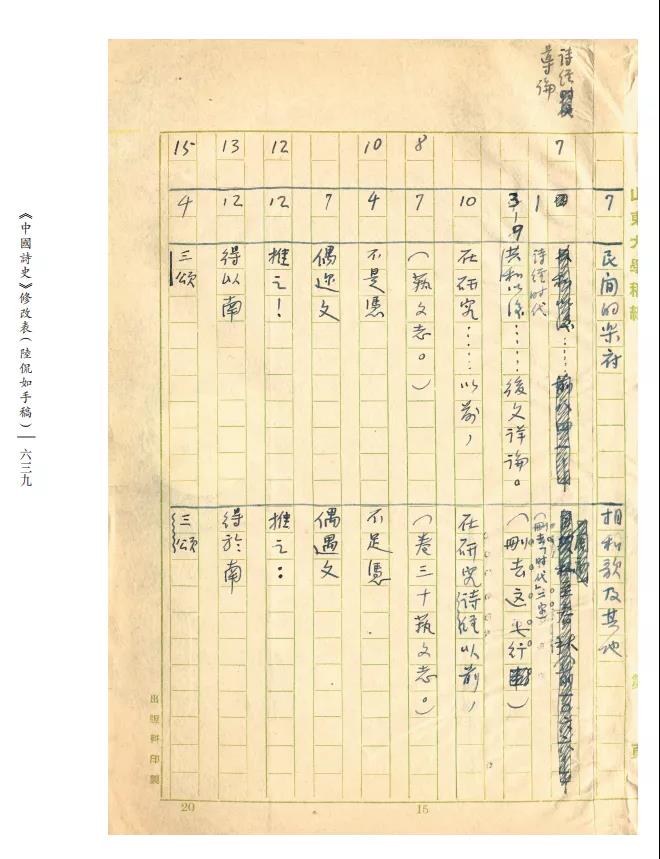 詩经
導論
山東大學稿紙
7 民间的乐府 相和歌及其他
7
1 詩經时代 (刪去“时代”二字)
3-9 共和以後……後文詳論。 (刪去這七行)
10 在研究……以前, 在研究詩經以前,
8 7 (藝文志。) (卷三十藝文志。)
10 4 不是憑 不足憑
7 偶迩文 偶遇文
12 12 推之! 推之:
13 12 得以南 得於南
15 4 三頌 三頌
出版科印製
15
20
《中國詩史》修改表(陸侃如手稿)— 六三九